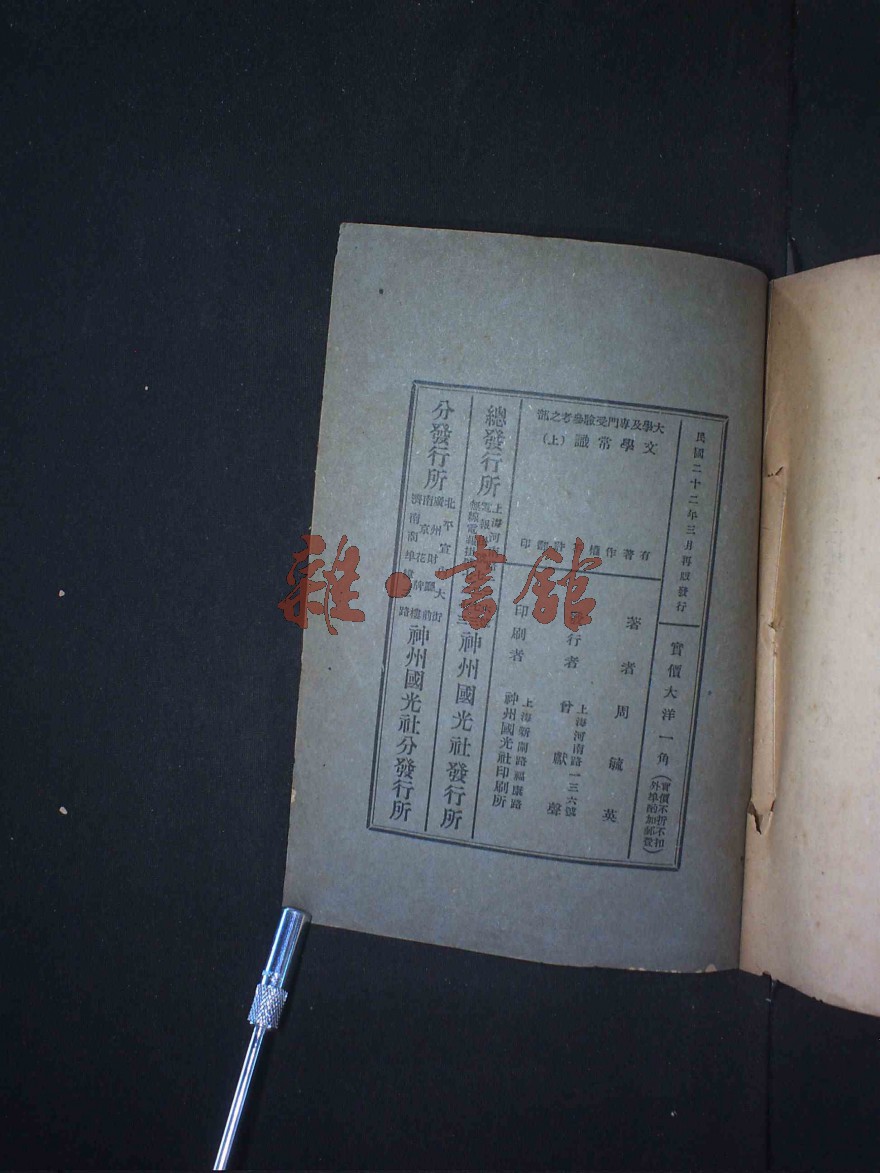 民國二十二年三月再版發行
實價大洋一角
(實價不折不扣
外埠酌加郵費)
大學及專門受驗參考之部
文學常識(上)
有著作權 翻印
著者 周毓英
行者 曾獻聲
上海河南路一三六號
印刷者
上海新閘路福康路
神州國光社印刷所
總發行所
上海河南
神州國光社發行所
分發行所
北平宣 大街
廣州財廳前
南京花牌樓
濟南商埠 路
神州國光社分發行所
雜·書館